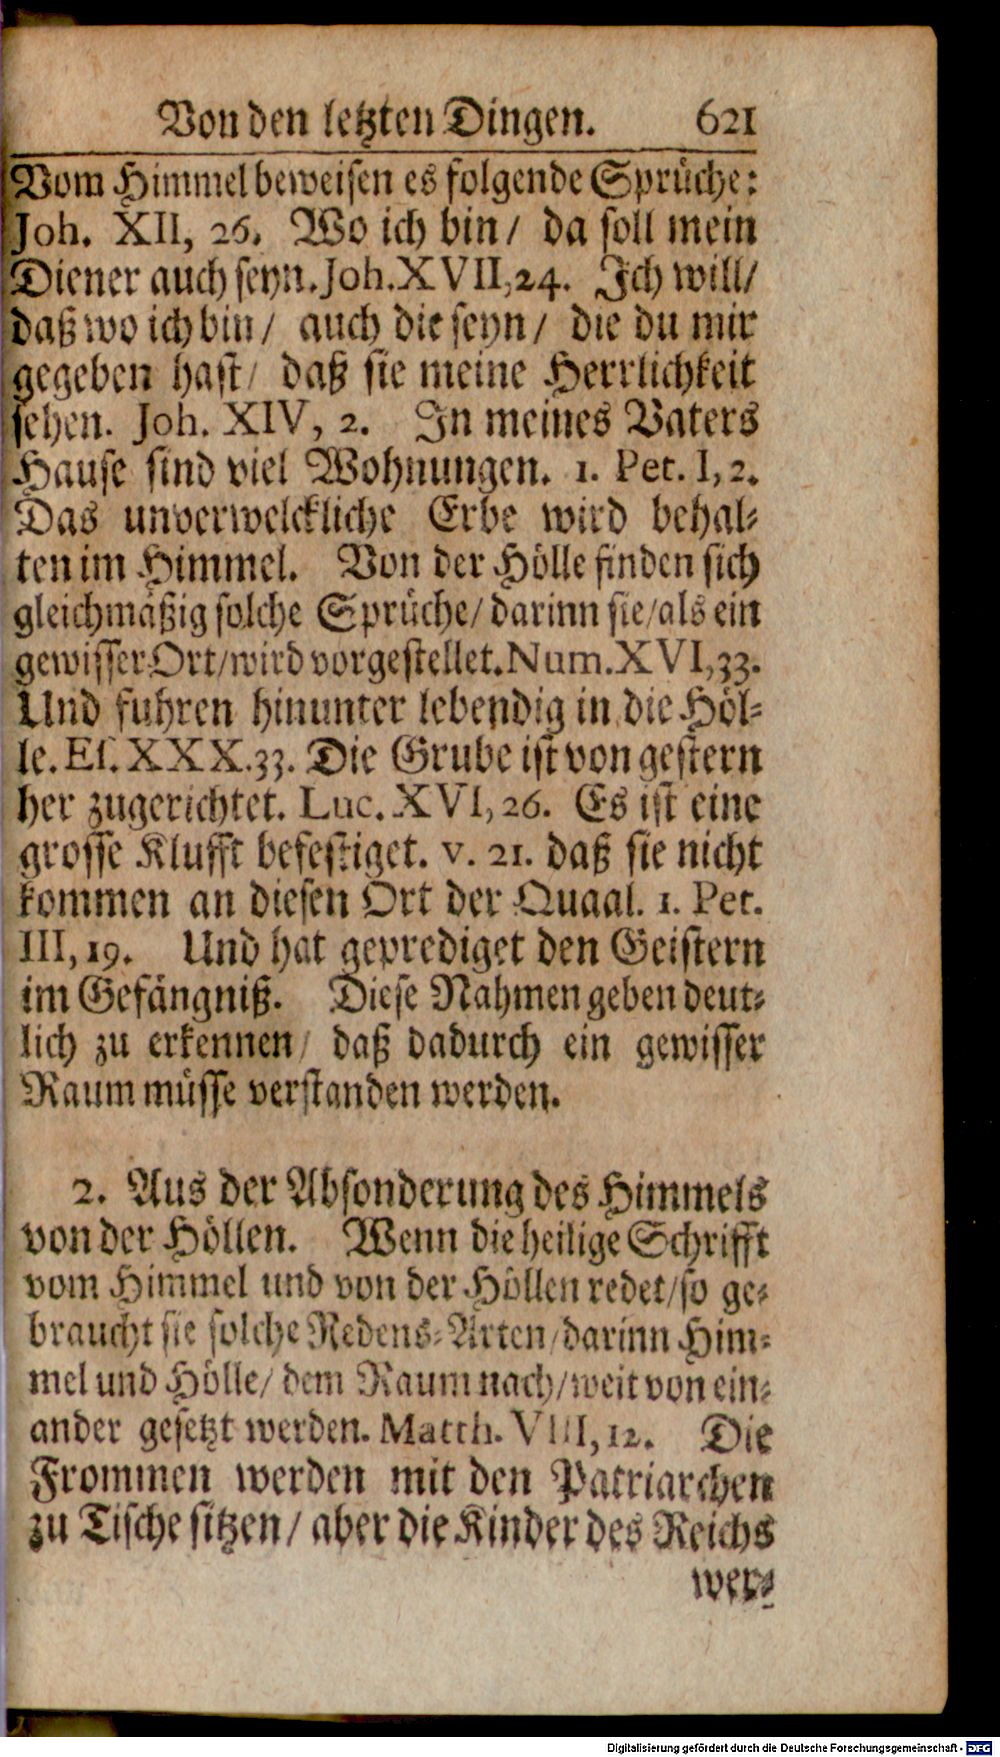 Von den letzten Dingen. 621
Vom Himmel beweisen es folgende Sprüche:
Joh. XII, 26. Wo ich bin/ da soll mein
Diener auch seyn. Joh. XVII, 24. Ich will/
daß wo ich bin/ auch die seyn/ die du mir
gegeben hast/ daß sie meine Herrlichkeit
sehen. Joh. XIV, 2. In meines Vaters
Hause sind viel Wohnungen. 1. Pet. I, 2.
Das unverwelckliche Erbe wird behal-
ten im Himmel. Von der Hölle finden sich
gleichmäßig solche Sprüche/ darinn sie/ als ein
gewisser Ort/ wird vorgestellet. Num. XVI, 33.
Und fuhren hinunter lebendig in die Höl-
le. Es. XXX. 33. Die Grube ist von gestern
her zugerichtet. Luc. XVI, 26. Es ist eine
grosse Klufft befestiget. v. 21. daß sie nicht
kommen an diesen Ort der Quaal. 1. Pet.
III, 19. Und hat geprediget den Geistern
im Gefängniß. Diese Nahmen geben deut-
lich zu erkennen/ daß dadurch ein gewisser
Raum müsse verstanden werden.
2. Aus der Absonderung des Himmels
von der Höllen. Wenn die heilige Schrifft
vom Himmel und von der Höllen redet/ so ge-
braucht sie solche Redens-Arten/ darinn Him-
mel und Hölle/ dem Raum nach/ weit von ein-
ander gesetzt werden. Matth. VIII, 12. Die
Frommen werden mit den Patriarchen
zu Tische sitzen/ aber die Kinder des Reichs
wer-
Digitalisierung gefördert durch die Deutsche Forschungsgemeinschaft - DFG